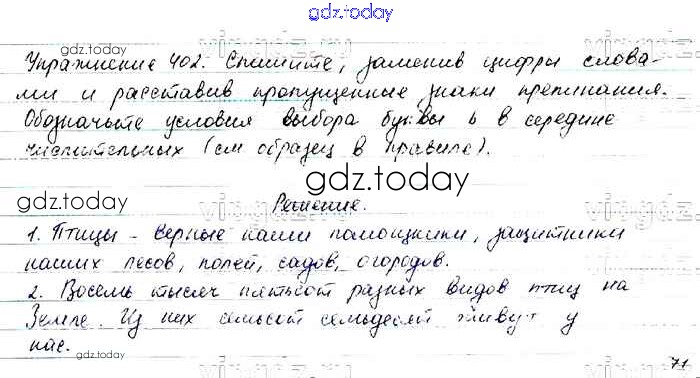 gdz.today
Упражнение 402. Спишите, заменив цифры слова-
ми и расставив пропущенные знаки препинания.
Обозначьте условия выбора буквы ь в середине
числительных (см образец в правиле).
gdz.today
gdz.today
gdz.today
Решение.
1. Птицы - верные наши помощники, защитники
наших лесов, полей, садов, огородов.
2. Восемь тысяч пятьсот разных видов птиц на
Земле. Из них семьсот семьдесят живут у
нас.
gdz.today
71